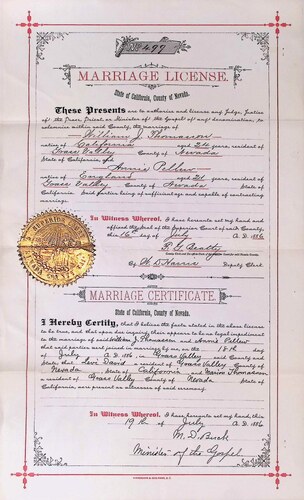 No. 497
MARRIAGE LICENSE.
State of California, County of Nevada.
These Presents are to authorize and license any Judge, Justice
of the Peace, Priest or Minister of the Gospel of any denomination, to
solemnize within said County, the marriage of
William J. Thomasson
native of California aged 24 years, resident of
Grass Valley County of Nevada
State of California, and
Annie Pellow
native of England aged 21 years, resident of
Grass Valley, County of Nevada State of
California. Said parties being of sufficient age and capable of contracting
marriage.
In Witness Whereof, I have hereunto set my hand and
affixed the Seal of the Superior Court of said County,
this 16th day of July A. D. 1886
F. G. Beatty
By Deputy Clerk.
MARRIAGE CERTIFICATE.
State of California, County of Nevada.
I Hereby Certify, that I believe the facts stated in the above license
to be true, and that upon due inquiry there appears to be no legal impediment
to the marriage of said William J. Thomasson and Annie Pellow
that said parties were joined in marriage by me on the 18th day
of July A. D. 1886, in Grass Valley said County and
State; that Levi David a resident of Grass Valley County of
Nevada State of California and Marion Thomasson
a resident of Grass Valley County of Nevada State of
California, are present as witnesses of said ceremony.
In Witness Whereof, I have hereunto set my hand, this
19th day of July A. D. 1886
M. D. Buck
Minister of the Gospel